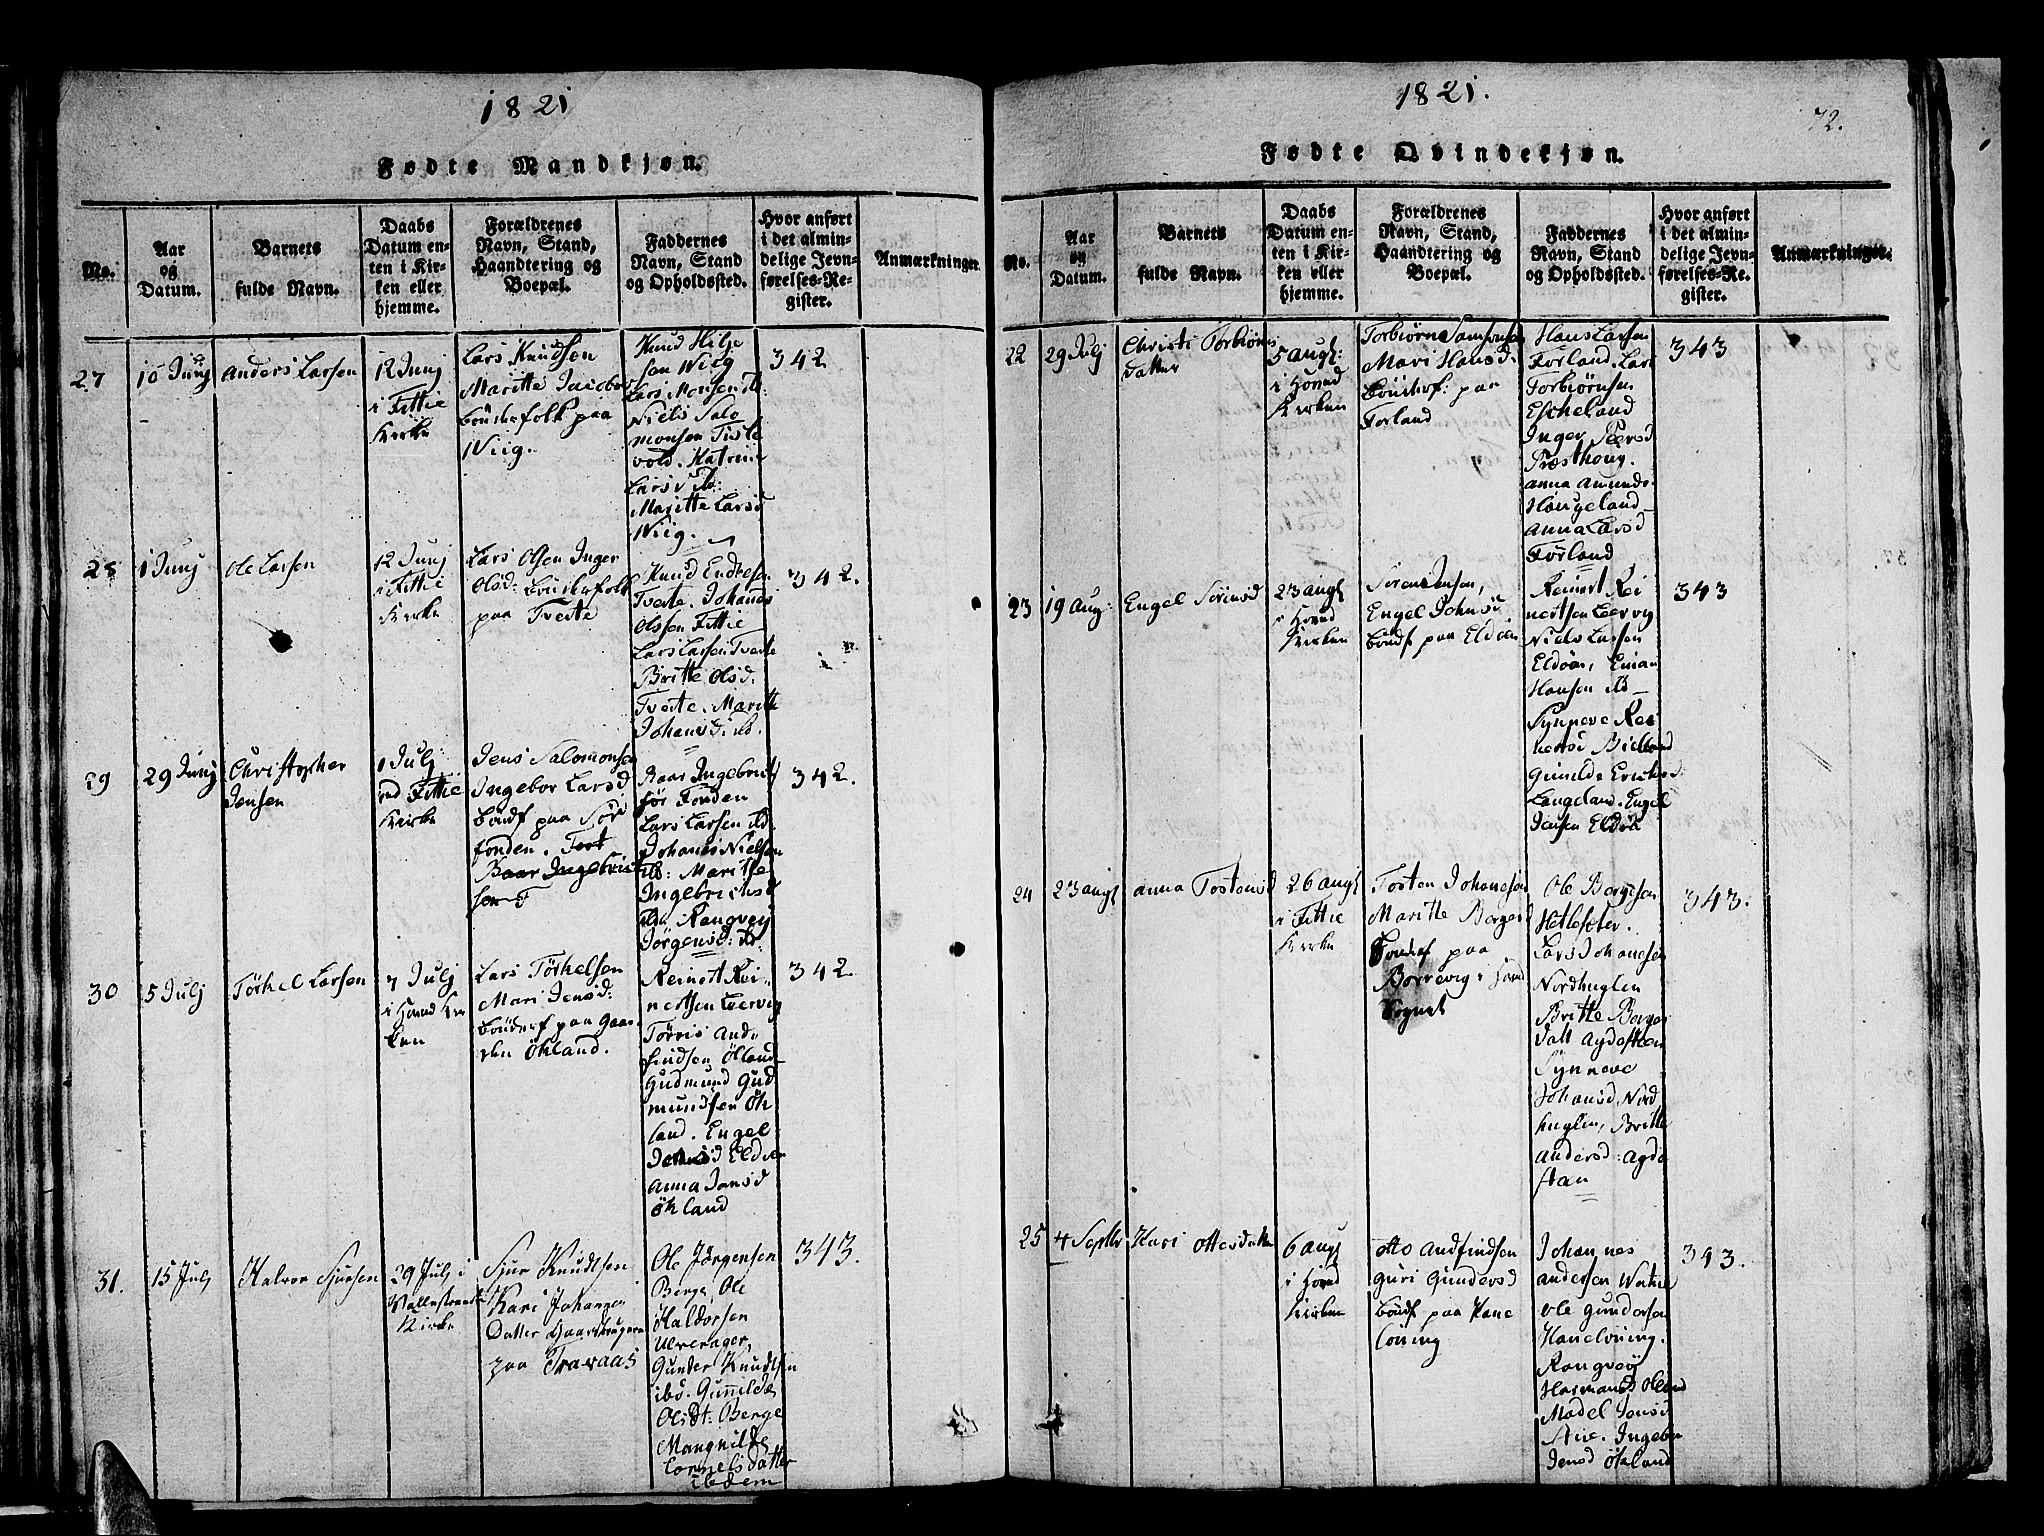 1821
Fødte Mandkjøn.
No.
Aar
og
Datum.
Barnets
fulde Navn.
Daabs
Datum en-
ten i Kir-
ken eller
hjemme.
Forældrenes
Navn, Stand,
Haandtering og
Boepæl.
Faddernes
Navn, Stand
og Opholdssted.
Hvor anført
i det almin-
delige Jevn-
førelses-Re-
gister.
Anmærkninger
27
10 Junj
Anders Larsen
12 Junj
i Fittie
Kirke
Lars Knudsen
Maritte Jacobs
Bønderfolk paa
Wiig.
Knud Hilje
sen Wiig
Lars Monsen ib:
Niels Salo
monsen Tisle
vold. Katrine
Larsd ib:
Maritte Larsd
Wiig.
342
28
1 Junj
Ole Larsen
12 Junj
i Fittie
Kirke
Lars Olsen Inger
Olsd: Bønderfolk
paa Tveite
Knud Endresen
Tveite. Johanes
Olssen Fittie
Lars Larsen Tveite
Britte Olsd.
Tveite. Maritte
Johansd: ib.
342.
29
29 Junj
Christopher
Jensen
1 Julj
ved Fittie
Kirke
Jens Salomonsen
Ingebor Larsd
Bøndf paa Sør
fonden.
Baar Ingebrict
sen
Baar Ingebrict
sør Fonden
Lars Larsen ib.
Johanes Nielsen
ib: Maritte
Ingebrictsd
ib. Rangvey
Jørgensd: ib:
342.
30
5 Julj
Tørkel Larsen
7 Julj
i Hoved Kir
ken
Lars Tørkelsen
Mari Jensd:
Bønderf paa Gaar
den Økland.
Reinert Rei-
nertsen Leervig
Tørris And-
findsen Øland
Gudmund Gud
mundsen Øk
land. Engel
Jensd Eldøen
Anna Jansd
Økland
342.
31.
15 Julj
Halvor Sjursen
29 Julj i
Vallestrands
Kirke
Sjur Knudtsen
Kari Johannes
Datter Gaardbrugere
paa Travaas
Ole Jørgensen
Berge, Ole
Haldorsen
Ulverager,
Gunder Knudtsen
ibd. Gunnilde
Olsdt: Berge
Mangnilde
Cornelsdatter
ibidem
343.
1821.
72.
Fødte Qvindekjøn.
No.
Aar
og
Datum.
Barnets
fulde Navn.
Daabs
Datum en-
ten i Kir-
ken eller
hjemme.
Forældrenes
Navn, Stand,
Haandtering og
Boepæl.
Faddernes
Navn, Stand
og Opholdssted.
Hvor anført
i det almin-
delige Jevn-
førelses-Re-
gister.
Anmærkninger.
22
29 Julj
Christi Torbiørns
datter
5 Augt:
i Hoved
Kirken
Torbiørn Samsonsen
Mari Hansd:
Bønderf: paa
Forland
Hans Larsen
Forland. Lars
Torbiørnsen
Escheland
Inger Peersd
Præsthoug.
Anna Amunds-
Hougeland
Anna Larsd
Førland
343
23
19 Aug:
Engel Sørensd
23 Augt
i Hoved
Kirken
Søren Jensen,
Engel Johnsd
Bøndf paa Eldøen
Reinert Rei
nertsen Leervig
Niels Larsen
Eldøen,
Hansen ib-
Synneve Rei
nersd Bielland
Gunilde Ericksd:
Langeland. Engel
Jensen Eldøe
343
24
23 Augt
Anna Tostensd
26 Augt
i Fittie
Kirke
Tosten Johanesen
Maritte Borgersd
Bøndf paa
Borrevig i Hoved
Sognet
Ole Borgesen
Hetleseter.
Lars Johanesen
Nordhuglen
Britte Borges
Datt Agdesteen
Synneve
Johansd Nord
huglen, Britte
Andersd: Agde
stan
343.
25
4 Septbr
Kari Ottesdatter
6 Augt
i Hoved
Kirken
Otto Andfindsen
Guri Gundersd
Bøndf paa Hane
løning
Johannes
Andersen Watne
Ole Gundersen
Haneløning.
Rangvey
Harmansd Øeland
Madel Jensd
Stue. Ingebor
Jensd Økland
343.